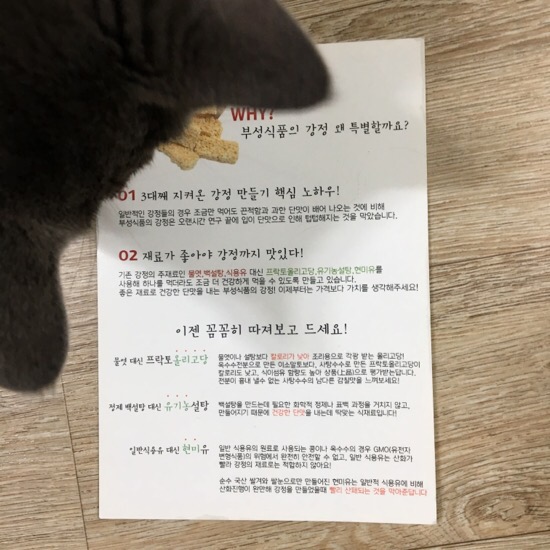 WHY?
부성식품의 강정 왜 특별할까요?
01 3대째 지켜온 강정 만들기 핵심 노하우!
일반적인 강정들의 경우 조금만 먹어도 끈적함과 과한 단맛이 배어 나오는 것에 비해
부성식품의 강정은 오랜시간 연구 끝에 입이 단맛으로 인해 텁텁해지는 것을 막았습니다.
02 재료가 좋아야 강정까지 맛있다!
기존 강정의 주재료인 물엿,백설탕,식용유 대신 프락토올리고당,유기농설탕,현미유를
사용해 하나를 먹더라도 조금 더 건강하게 먹을 수 있도록 만들고 있습니다.
좋은 재료로 건강한 단맛을 내는 부성식품의 강정! 이제부터는 가격보다 가치를 생각해주세요!
이젠 꼼꼼히 따져보고 드세요!
물엿 대신 프락토올리고당
물엿이나 설탕보다 칼로리가 낮아 조리용으로 각광 받는 올리고당!
옥수수전분으로 만든 이소말토보다, 사탕수수로 만든 프락토올리고당이
칼로리도 낮고, 식이섬유 함량도 높아 상품(上品)으로 평가받는답니다.
전분이 흉내 낼수 없는 사탕수수의 남다른 감칠맛을 느껴보세요!
정제 백설탕 대신 유기농설탕
백설탕을 만드는데 필요한 화학적 정제나 표백 과정을 거치지 않고,
만들어지기 때문에 건강한 단맛을 내는데 탁맞는 식재료입니다!
일반식용유 대신 현미유
일반 식용유의 원료로 사용되는 콩이나 옥수수의 경우 GMO(유전자
변형식품)의 위험에서 완전히 안전할 수 없고, 일반 식용유는 산화가
빨라 강정의 재료로는 적합하지 않아요!
순수 국산 쌀겨와 쌀눈으로만 만들어진 현미유는 일반적 식용유에 비해
산화진행이 완만해 강정을 만들었을때 빨리 산패되는 것을 막아준답니다